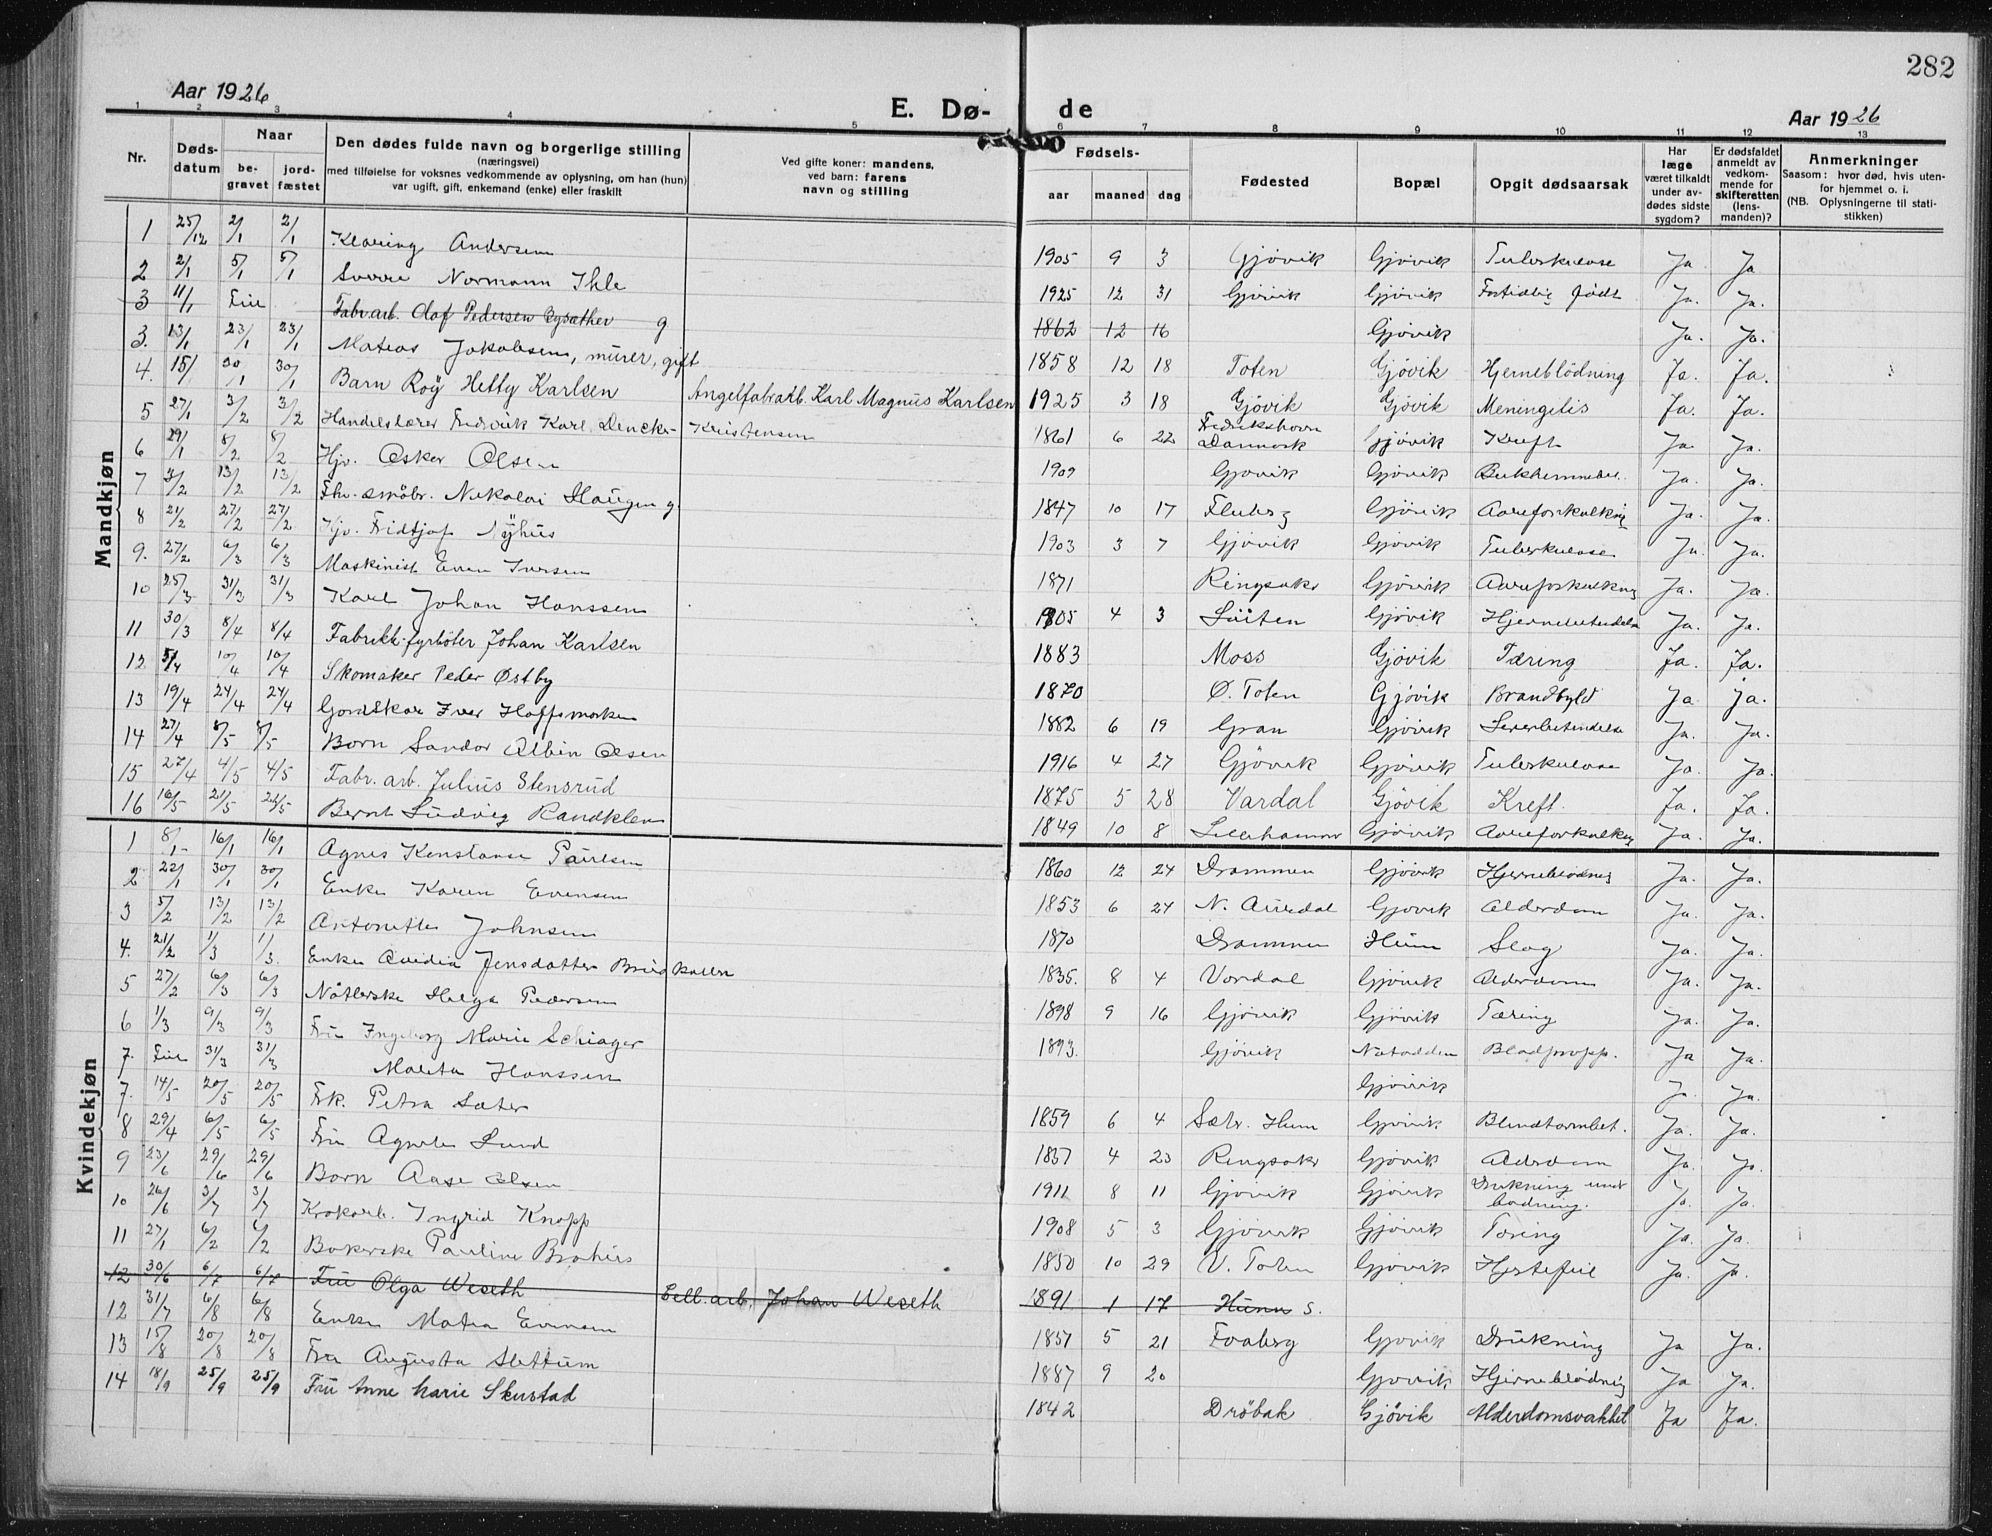 282
Aar 1926
E. Dø-
de
Aar 1926
1 2 3 4 5 6 7 8 9 10 11 12 13
Nr.
Døds-
datum
Naar
be-
gravet
jord-
fæstet
Den dødes fulde navn og borgerlige stilling
(næringsvei)
med tilføielse for voksnes vedkommende av oplysning, om han (hun)
var ugift, gift, enkemand (enke) eller fraskilt
Ved gifte koner: mandens,
ved barn: farens
navn og stilling
Fødsels-
aar maaned dag
Fødested
Bopæl
Opgit dødsaarsak
Har
læge
været tilkaldt
under av-
dødes sidste
sygdom?
Er dødsfaldet
anmeldt av
vedkom-
mende for
skifteretten
(lens-
manden)?
Anmerkninger
Saasom: hvor død, hvis uten-
for hjemmet o. i.
(NB. Oplysningerne til stati-
stikken)
Mandkjøn
1 25/12 2/1 2/1 Klaring Andersen 1905 9 3 Gjøvik Gjøvik Tuberkulose Ja Ja
2 2/1 5/1 5/1 Sverre Normann Ihle 1925 12 31 Gjøvik Gjøvik Fortidlig født Ja. Ja.
3 11/1 Fabr.arb. Olaf Pedersen g 1862 12 16 Gjøvik Ja. Ja.
3. 13/1 23/1 23/1 Mateas Jakobsen, murer, gift 1858 12 18 Toten Gjøvik Hjerneblödning Ja. Ja.
4. 15/1 30/1 30/1 Barn Roy Hetty Karlsen Angelfabrarb. Karl Magnus Karlsen 1925 3 18 Gjøvik Gjøvik Meningitis Ja. Ja.
5 27/1 3/2 3/2 Handelslærer Fredrik Karl Dencker-Kristensen 1861 6 22 Fredrikshavn Danmark Gjøvik Kreft Ja Ja.
6 29/1 8/2 8/2 Hjv. Asker Olsen 1909 Gjøvik Gjøvik Ja. Ja.
7 3/2 13/2 13/2 Fhv. smøbr. Nikolai Haugen g. 1847 10 17 Fluberg Gjøvik Aareforkalkng Ja. Ja.
8 21/2 27/2 27/2 Hjv. Fridtjof Nyhus 1903 3 7 Gjøvik Gjøvik Tuberkulose Ja. Ja.
9. 27/2 6/3 6/3 Maskinist Even Iversen 1871 Ringsaker Gjøvik Aareforkalkng Ja. Ja.
10 25/3 31/3 31/3 Karl Johan Hanssen 1905 4 3 Løiten Gjøvik Hjernebetendelse Ja. Ja.
11 30/3 8/4 8/4 Fabrikk-fyrbøter Johan Karlsen 1883 Moss Gjøvik Tæring Ja. Ja.
12 5/4 10/4 10/4 Skomaker Peder Østby 1870 Ø. Toten Gjøvik Brandbyld Ja Ja.
13 19/4 24/4 24/4 Gardskar Iver Hoffsmarken 1882 6 19 Gran Gjøvik Leverbetendelse Ja. Ja.
14 27/4 8/5 8/5 Barn Sandor Albin Olsen 1916 4 27 Gjøvik Gjøvik Tuberkulose Ja. Ja.
15 27/4 4/5 4/5 Fabr. arb. Julius Stensrud 1875 5 28 Vardal Gjøvik Kreft. Ja. Ja.
16 16/5 21/5 21/5 Bernt Ludvig Randklev 1849 10 8 Lillehammer Gjøvik Aareforkalkng Ja. Ja.
Kvindekjøn
1 8/1 16/1 16/1 Agnes Konstanse Paulsen 1860 12 24 Drammen Gjøvik Hjerneblødning Ja. Ja.
2 22/1 30/1 30/1 Enke Karen Evensen 1853 6 24 N. Aurdal Gjøvik Alderdom Ja. Ja.
3 5/2 13/2 13/2 Antonette Johnsen 1870 Drammen Hunn Slag Ja. Ja.
4. 21/2 1/3 1/3. Enke Jensdatter 1835. 8 4 Vardal Gjøvik Alderdom Ja. Ja.
5 27/2 6/3 6/3 Nåtlerske Helga Pedersen 1898 9 16 Gjøvik Gjøvik Tæring Ja. Ja.
6 1/3 9/3 9/3 Fru Ingeborg Marie Schiager 1893. Gjøvik Notodden Blodpropp. Ja Ja.
7. 31/3 31/3 Marta Hanssen Gjøvik Ja. Ja.
7. 14/5 20/5 20/5 Frk. Petra Sæter 1859 6 4 Sætr. Hun Gjøvik Blindtarmbet. Ja. Ja.
8 29/4 6/5 6/5 Fru Agnete Lund 1837 4 23 Ringsaker Gjøvik Alderdom Ja. Ja.
9 23/6 29/6 29/6 Barn Aase Olsen 1911 8 11 Gjøvik Gjøvik Drukning und badning. Ja. Ja.
10 26/6 3/7 3/7 Krokarb. Ingrid Knapp 1908 5 3 Gjøvik Gjøvik Tæring Ja. Ja.
11 27/1 6/2 6/2 Bakerske Pauline Brahus 1850 10 29 V. Toten Gjøvik Hjertefeil Ja. Ja.
12 30/6 6/7 6/7 Fru Olga Weseth Cell.arb. Johan Weseth 1891 1 17 Hunn s.
12 31/7 6/8 6/8 Enke Matea Evensen 1851 5 21 Faaberg Gjøvik Drukning Ja Ja.
13 15/8 20/8 20/8 Fru Augusta Slettum 1887 9 20 Gjøvik Hjerneblødnig Ja Ja.
14 18/9 25/9 25/9 Fru Anne Marie Skustad 1842 Drøbak Gjøvik Alderdomsvakhet Ja Ja.